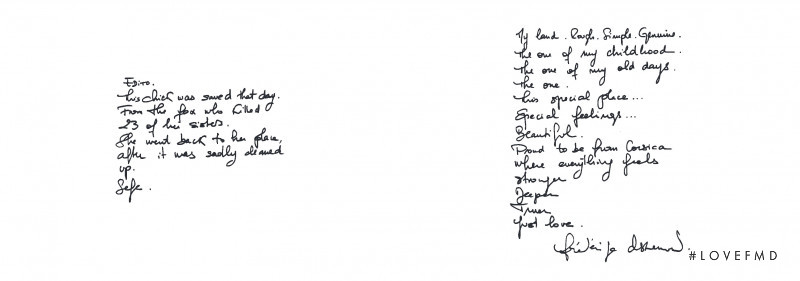 Edito.
This chick was saved that day.
From the fox who killed
23 of her sisters.
She went back to her place,
after it was sadly cleaned
up.
Safe.
My land. Rough. Simple. Genuine.
The one of my childhood.
The one of my old days.
The one.
This special place...
Special feelings...
Beautiful.
Proud to be from Corsica
where everything feels
stronger
Deeper
Truer
Just love.
#LOVEFMD